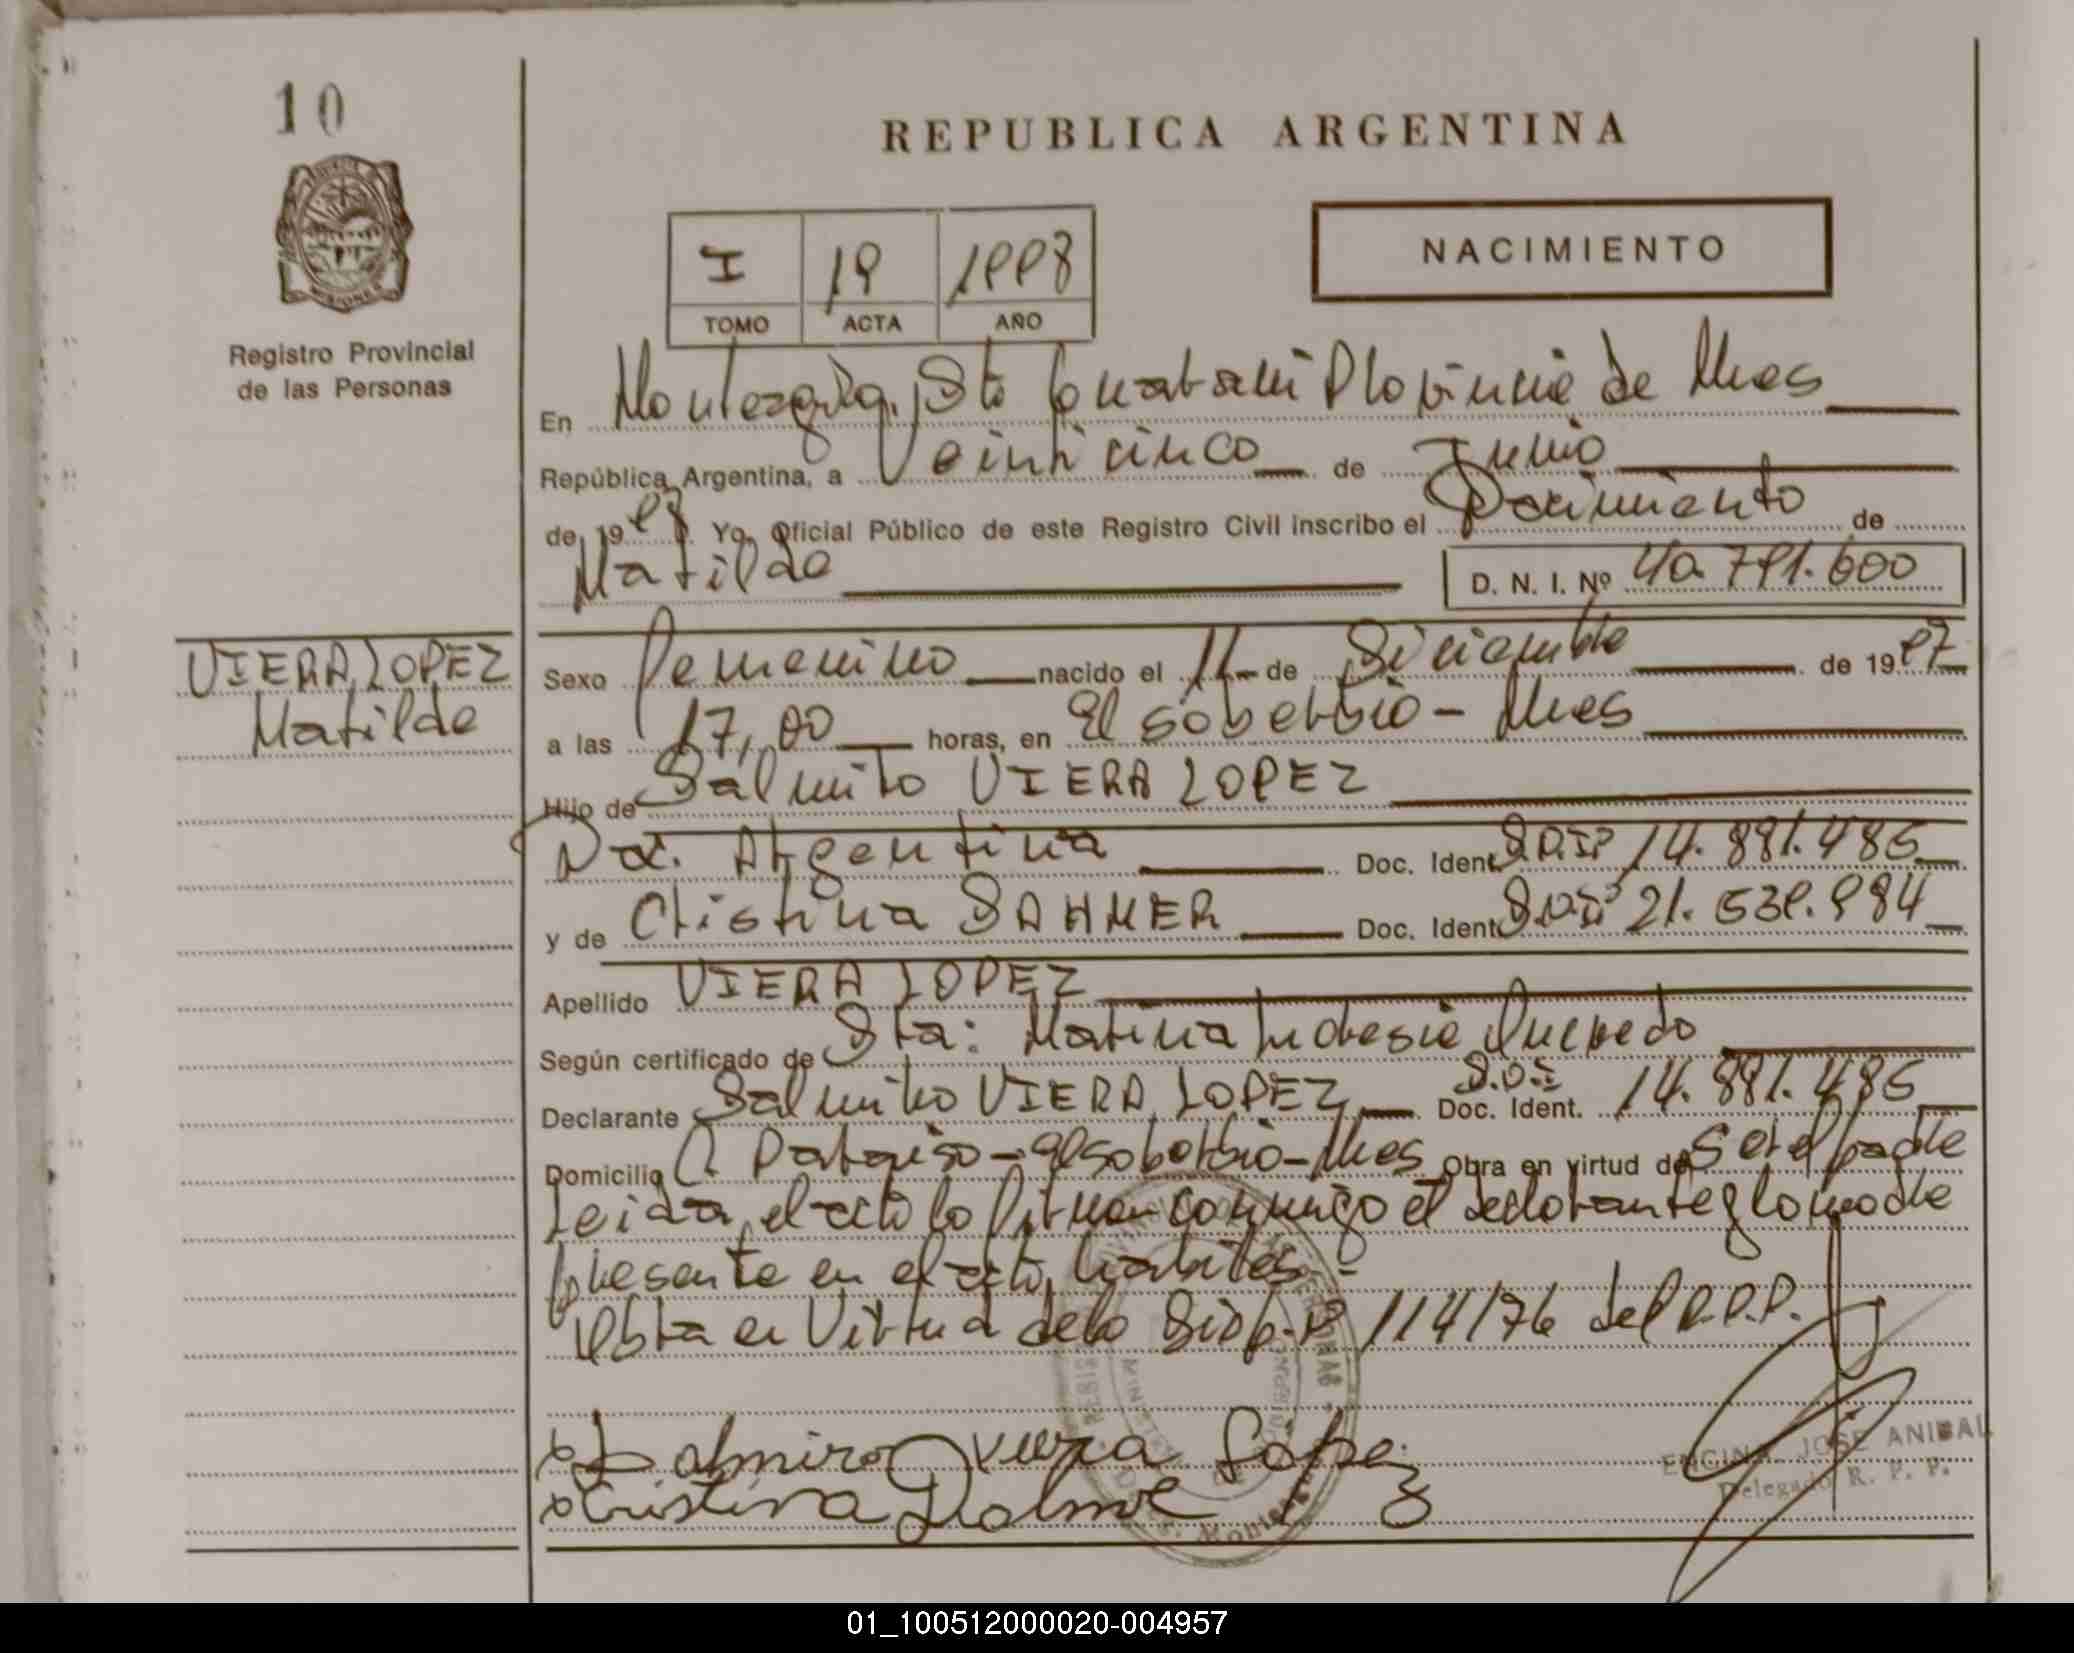 10
REPUBLICA ARGENTINA
NACIMIENTO
I 19 1998
TOMO ACTA AÑO
Registro Provincial
de las Personas
En Monteagudo, Dto Guaraní Provincia de Mnes
República Argentina, a Veinticinco de Junio
de 1998 Yo, Oficial Público de este Registro Civil inscribo el Nacimiento de
Matilde D. N. I. Nº 40.791.600
VIERA LOPEZ
Matilde
Sexo Femenino nacido el 11 de Diciembre de 1997
a las 17,00 horas, en El Soberbio - Mnes
Hijo de Dalmiro VIERA LOPEZ
Nac. Argentina Doc. Ident. D.N.I. 14.881.485
y de Cristina DAHMER Doc. Ident. D.N.I. 21.539.984
Apellido VIERA LOPEZ
Según certificado de Dra: Marina Quevedo
Declarante Dalmiro VIERA LOPEZ D.N.I. Doc. Ident. 14.881.485
Domicilio Paraiso - El Soberbio - Mnes Obra en virtud de Ser el padre
Leida el acta la firman conmigo el declarante y la madre
presente en el acto, habiles -
Obra en Virtud de la Disp. Nº 114/76 del R.P.P.
Dalmiro Viera Lopez
Cristina
ENCINA JOSE ANIBAL
Delegado R. P. P.
01_100512000020-004957